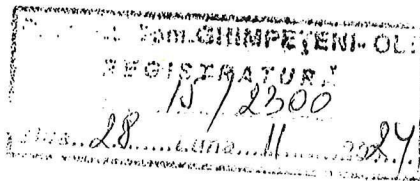 Com. GHIMPEȚENI-OLT
REGISTRATURĂ
15 / 2300
Ziua 28 luna 11 2024